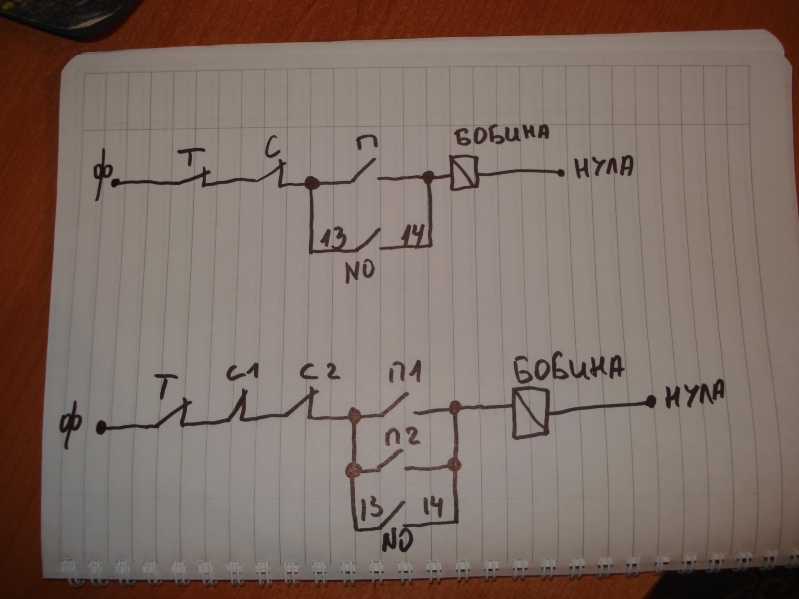 БОБИНА
Ф Т С П НУЛА
13 14
NO
БОБИНА
Ф Т С1 С2 П1 НУЛА
П2
13 14
NO